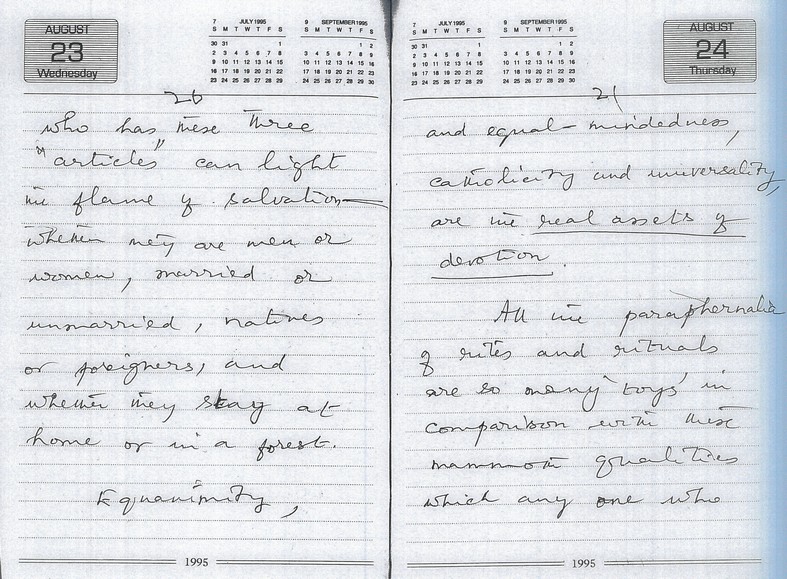 AUGUST
23
Wednesday
7 JULY 1995
S M T W T F S
30 31 1
2 3 4 5 6 7 8
9 10 11 12 13 14 15
16 17 18 19 20 21 22
23 24 25 26 27 28 29
9 SEPTEMBER 1995
S M T W T F S
1 2
3 4 5 6 7 8 9
10 11 12 13 14 15 16
17 18 19 20 21 22 23
24 25 26 27 28 29 30
20
who has these three
"articles" can light
the flame of salvation—
whether they are men or
women, married or
unmarried, natives
or foreigners, and
whether they stay at
home or in a forest.
Equanimity,
1995
7 JULY 1995
S M T W T F S
30 31 1
2 3 4 5 6 7 8
9 10 11 12 13 14 15
16 17 18 19 20 21 22
23 24 25 26 27 28 29
9 SEPTEMBER 1995
S M T W T F S
1 2
3 4 5 6 7 8 9
10 11 12 13 14 15 16
17 18 19 20 21 22 23
24 25 26 27 28 29 30
AUGUST
24
Thursday
21
and equal-mindedness,
catholicity and universality,
are the real assets of
devotion.
All the paraphernalia
of rites and rituals
are so many 'toys' in
comparison with these
mammoth qualities
which any one who
1995